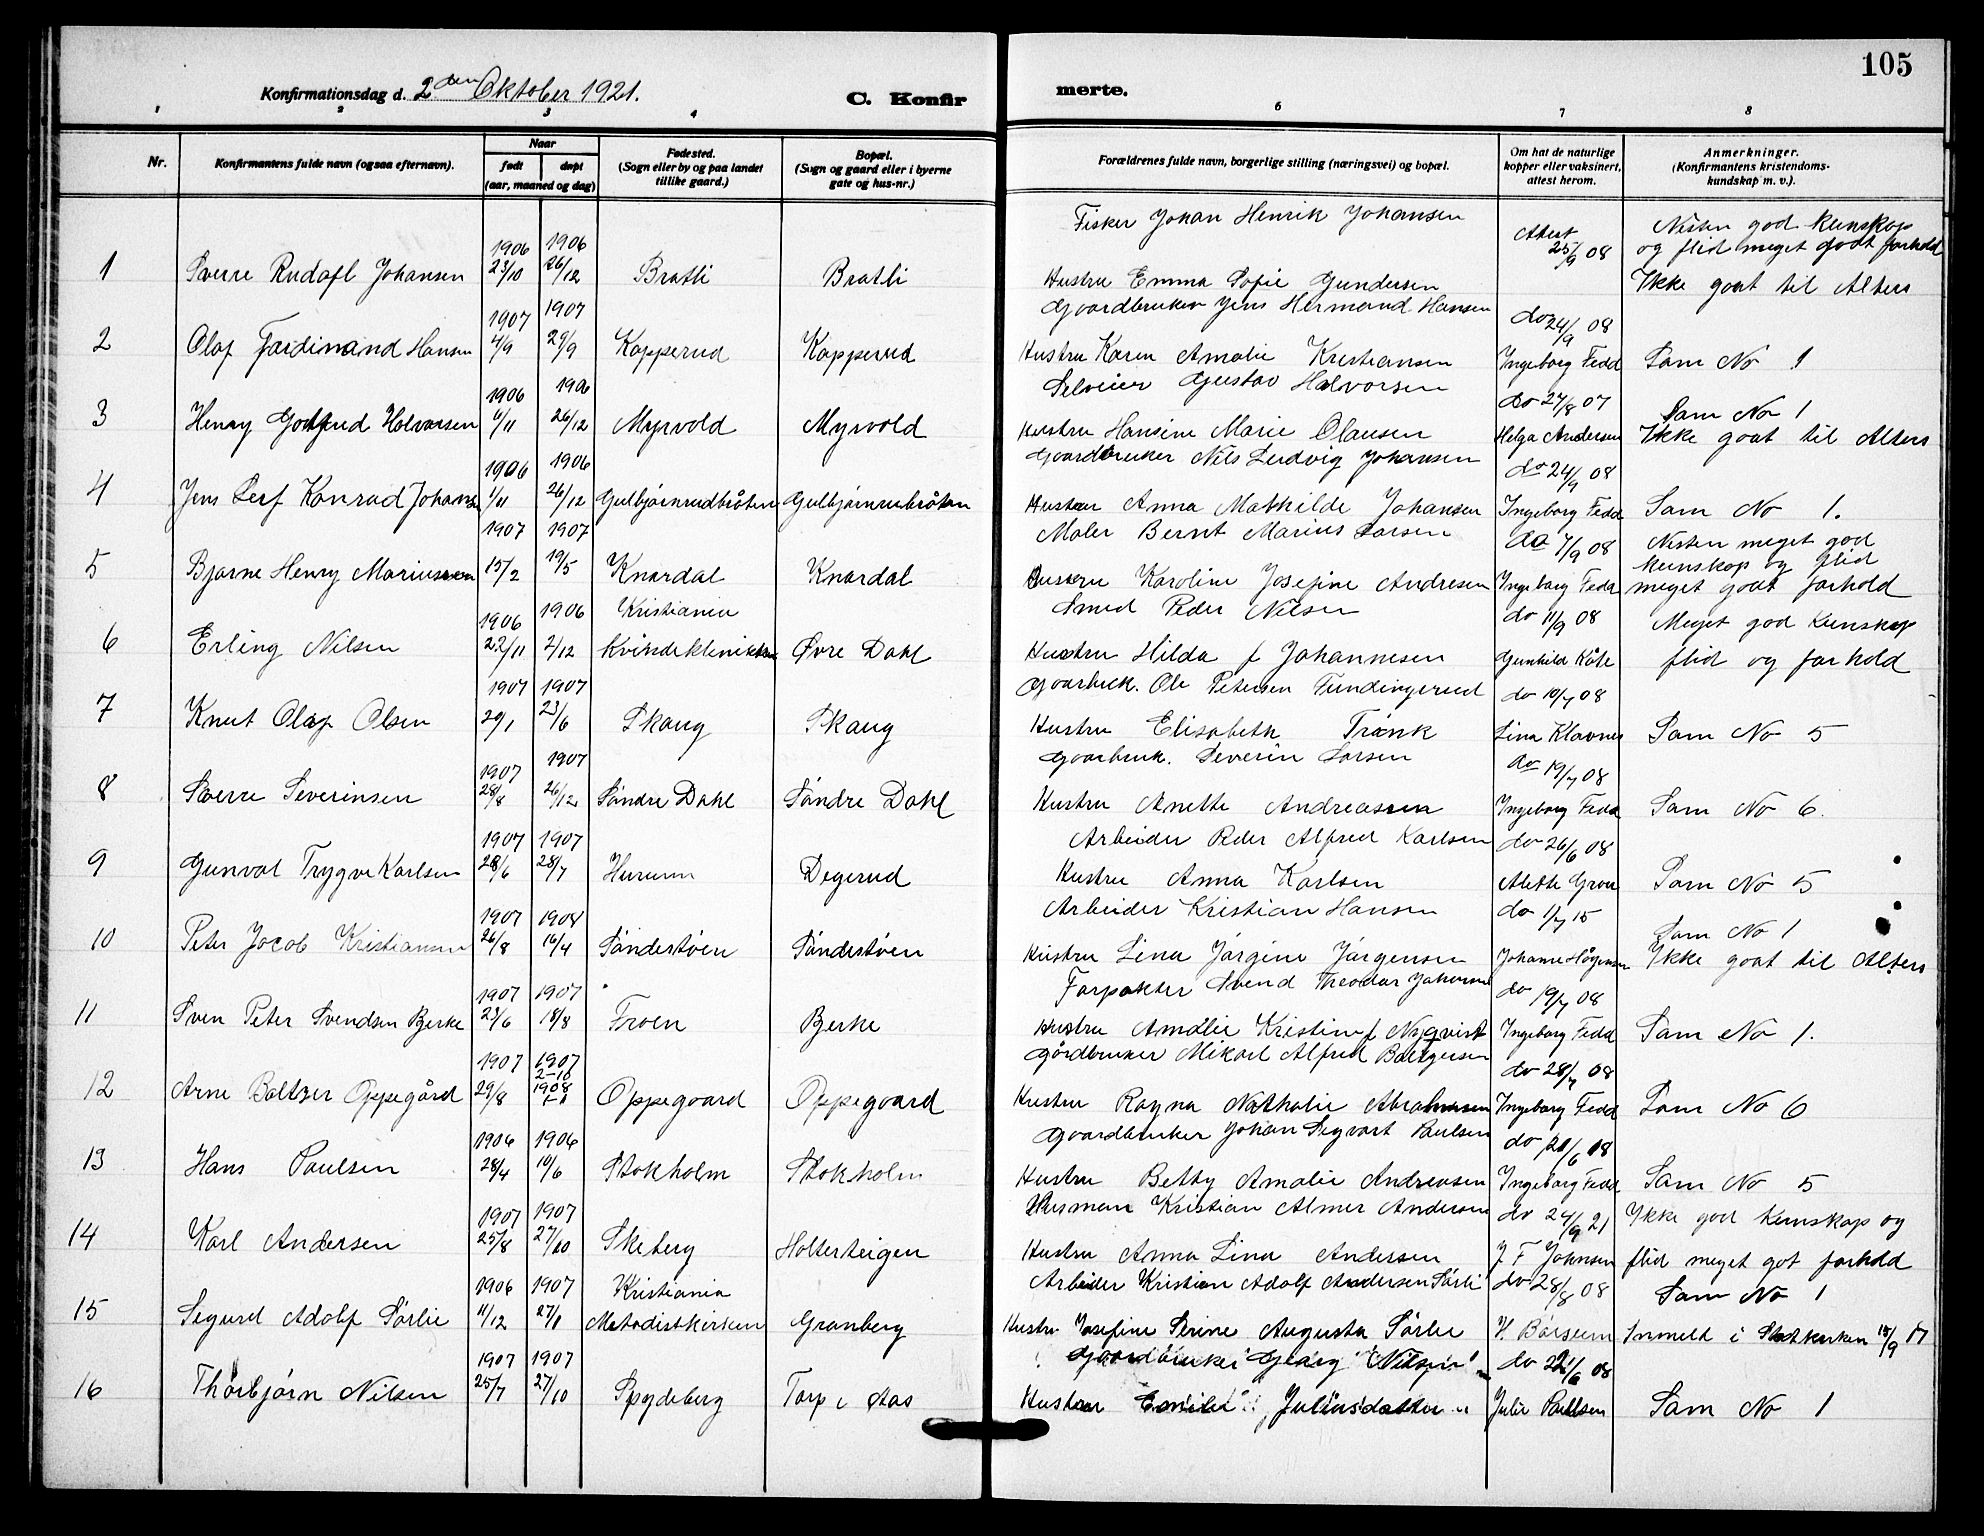 105
Konfirmationsdag d. 2den Oktober 1921.
C. Konfir
merte.
1 2 3 4 6 7 8
Nr.
Konfirmantens fulde navn (ogsaa efternavn).
Naar
født
døpt
(aar, maaned og dag)
Fødested.
(Sogn eller by og paa landet
tillike gaard.)
Bopæl.
(Sogn og gaard eller i byerne
gate og hus-nr.)
Forældrenes fulde navn, borgerlige stilling (næringsvei) og bopæl.
Om hat de naturlige
kopper eller vaksinert,
attest herom.
Anmerkninger.
(Konfirmantens kristendoms-
kundskap m. v.).
Fisker Johan Henrik Johansen
Attest 25/9 08
Nesten god kunskap
og flid meget godt forhold
1906 1906
1 Sverre Rudolf Johansen 23/10 26/12 Bratli Bratli
Hustru Emma Sofie Gundersen
Ikke gaat til Alters
1907 1907
Gaardbruker Jens Hermand Hansen
do 24/9 08
2 Olaf Ferdinand Hansen 4/9 29/9 Kopperud Kopperud
Hustru Karen Amalie Kristiansen Ingeborg Fedd Sam No 1
1906 1906
Gustav Halvorsen
do 27/8 07
Sam No 1
3 Henry Godtfred Halvorsen 6/11 26/12 Myrvold Myrvold
Hustru Hansine Marie Olausen Helga Andersen Ikke gaat til Alters
1906 1906
Gaardbruker Nils Ludvig Johansen
do 24/9 08
4 Jens Leif Konrad Johansen 1/11 26/12 Gulbjørnrudbråten Gulbjørnrubråten
Hustru Anna Mathilde Johansen Ingeborg Fedd Sam No 1.
1907 1907
Maler Bernt Marius Larsen
do 7/9 08
Nesten meget god
kunskap og flid
5 Bjarne Henry Mariussen 15/2 19/5 Knardal Knardal
Hustru Karoline Josefine Andresen Ingeborg Fedd meget godt forhold
1906 1906 Kristiania
Smed Peder Nilsen
do 11/9 08
Meget god Kunskap
6 Erling Nilsen 22/11 2/12 Kvindeklinikken Øvre Dahl
Hustru Hilda f Johannesen Gunhild Kåte flid og forhold
1907 1907
Gaarbruk. Ole Petersen Fundingerud
do 10/7 08
7 Knut Olaf Olsen 29/1 23/6 Skaug Skaug
Hustru Elisabeth Trönk Lina Klavnes Sam No 5
1907 1907
Gaarbruk. Severin Larsen
do 19/7 08
8 Sverre Severinsen 28/8 26/12 Søndre Dahl Søndre Dahl
Hustru Anette Andreassen Ingeborg Fedd Sam No 6.
1907 1907
Arbeider Peder Alfred Karlsen
do 26/6 08
9 Gunval Trygve Karlsen 28/6 28/7 Hurum Degerud
Hustru Anna Karlsen Alette Grov Sam No 5
1907 1908
Arbeider Kristian Hansen
do 1/7 15
Sam No 1
10 Peter Jocob Kristiansen 26/8 16/4 Søndestøen Søndestøen
Hustru Lina Jørgine Jørgensen Johanne Ikke gaat til Alters
1907 1907
Forpakter Svend Theodor Johansen
do 19/7 08
11 Sven Peter Svendsen Berke 23/6 18/8 Froen Berke
Hustru Amalie Kristine f Nyqvist Ingeborg Fedd Sam No 1.
1907 1907
Gårdbruker Mikael Alfred Baltzersen
2-10
do 28/7 08
12 Arne Baltzer Oppegård 29/8 1908 Oppegaard Oppegaard
Hustru Ragna Nathalie Abrahamsen Ingeborg Fedd Sam No 6
1906 1906
Gaardbruker Johan Segvart Paulsen
do 20/6 08
13 Hans Paulsen 28/4 10/6 Stokholm Stokholm
Hustru Betty Amalie Andreasen Ingeborg Fedd Sam No 5
1907 1907
Husman Kristian Almer Andersen
do 24/9 21
Ikke god Kunskap og
14 Karl Andersen 25/8 27/10 Skeberg Holterteigen
Hustru Anna Lina Andersen J. F Johnsen flid meget got forhold
1906 1907 Kristiania
Arbeider Kristian Adolf Andersen Sørli
do 28/8 08
Sam No 1
15 Segurd Adolf Sørlie 11/12 27/1 Metodistkirken Granberg
Hustru Josefine Serine Augusta Sørlie H. Børsum Inmeld i Statkirken 15/9 17
1907 1907
Gaardbruker Georg Nilsen
do 22/6 08
16 Thorbjørn Nilsen 25/7 27/10 Spydeberg Torp i Aas
Hustru Emilie Juliusdatter Julie Paulsen Sam No 1